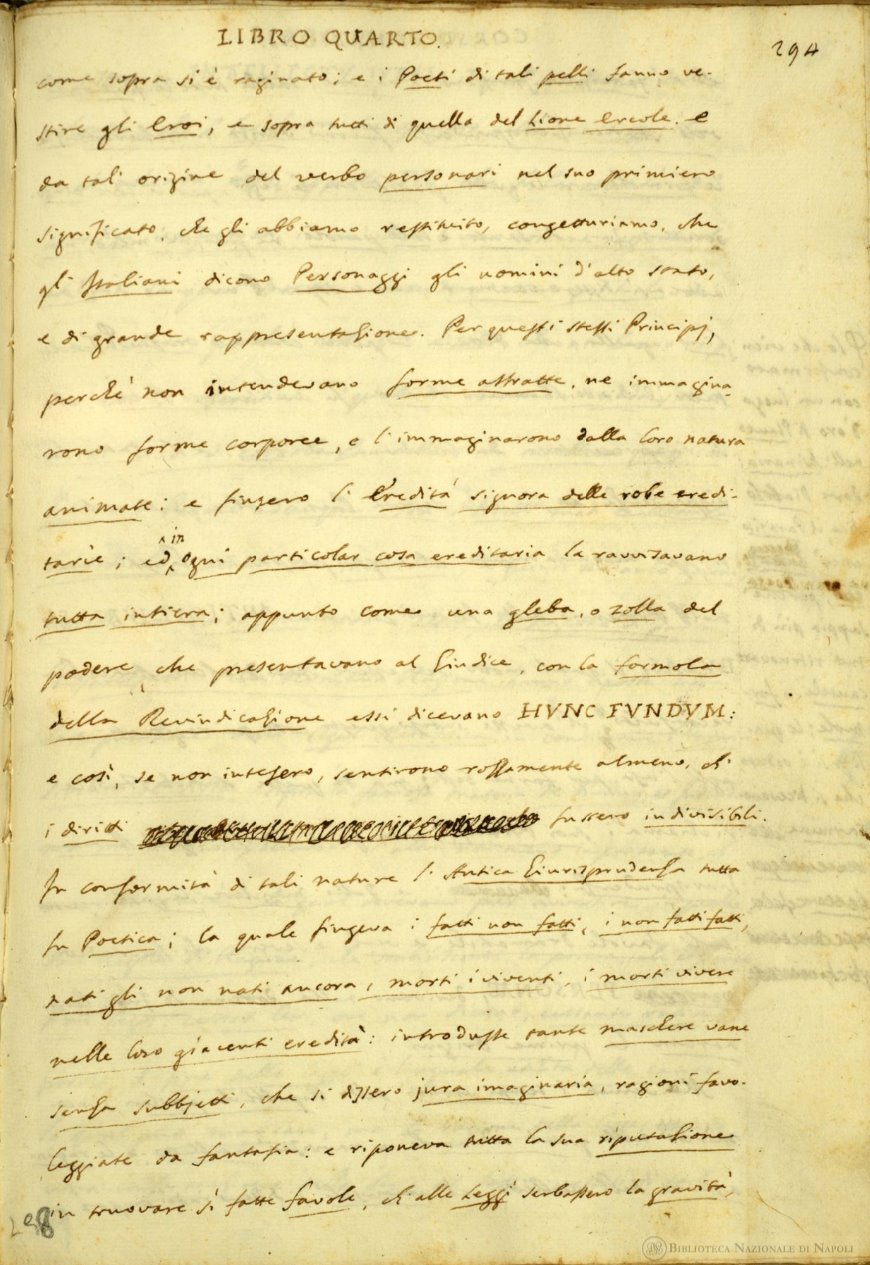 LIBRO QUARTO.
294
come sopra si è raginato; e i Poeti di tali pelli fanno ve-
stire gli Eroi, e sopra tutti di quella del Lione Ercole. e
da tal' origine del verbo personari nel suo primiero
significato, che gli abbiamo restituito, congetturiamo, che
gl' Italiani dicono Personaggi gli uomini d'alto stato,
e di grande rappresentazione. Per questi stessi Principj,
perchè non intendevano forme astratte, ne immagina-
rono forme corporee, e l'immaginarono dalla loro natura
animate: e finsero l' Eredità signora delle robe eredi-
tarie; ed in ogni particolar cosa ereditaria la ravvisavano
tutta intiera; appunto come una gleba, o zolla del
podere che presentavano al Giudice, con la formola
della Revindicazione essi dicevano HVNC FVNDVM:
e così, se non intesero, sentirono rozzamente almeno, ch'
i diritti fussero indivisibili.
In conformità di tali nature l' Antica Giurisprudenza tutta
fu Poetica; la quale fingeva i fatti non fatti, i non fatti fatti,
nati gli non nati ancora, morti i viventi, i morti vivere
nelle loro giacenti eredità: introdusse tante maschere vane
senza subbjetti, che si dissero jura imaginaria, ragioni favo-
leggiate da fantasia: e riponeva tutta la sua riputazione
in truovare sì fatte favole, ch' alle Leggi serbassero la gravità,
BIBLIOTECA NAZIONALE DI NAPOLI